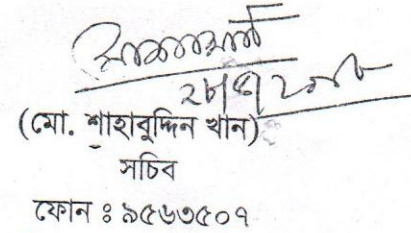 (মো. শাহাবুদ্দিন খান)
সচিব
ফোন ঃ ৯৫৬৩৫০৭